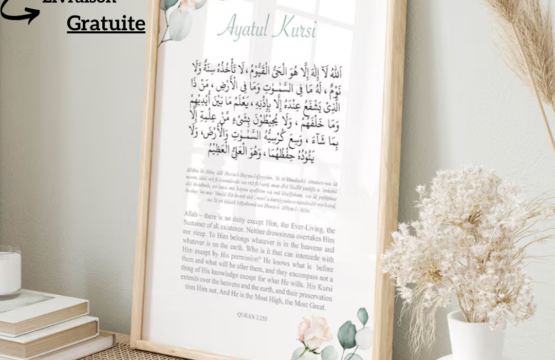 Livraison
Gratuite
Ayatul Kursi
اَللهُ لَآ إِلٰهَ إِلَّا هُوَ الْحَىُّ الْقَيُّوْمُ ، لَا تَأْخُذُهُ سِنَةٌ وَّلَا
نَوْمٌ ، لَهُ مَا فِى السَّمٰوٰتِ وَمَا فِى الْأَرْضِ ، مَنْ ذَا
الَّذِىْ يَشْفَعُ عِنْدَهُ إِلَّا بِإِذْنِهِ ، يَعْلَمُ مَا بَيْنَ أَيْدِيْهِمْ
وَمَا خَلْفَهُمْ ، وَلَا يُحِيْطُوْنَ بِشَىْءٍ مِّنْ عِلْمِهِ إِلَّا
بِمَا شَآءَ ، وَسِعَ كُرْسِيُّهُ السَّمٰوٰتِ وَالْأَرْضَ، وَلَا
يَئُوْدُهُ حِفْظُهُمَا ، وَهُوَ الْعَلِىُّ الْعَظِيْمُ
Allah – there is no deity except Him, the Ever-Living, the
Sustainer of all existence. Neither drowsiness overtakes Him
nor sleep. To Him belongs whatever is in the heavens and
whatever is on the earth. Who is it that can intercede with
Him except by His permission? He knows what is before
them and what will be after them, and they encompass not a
thing of His knowledge except for what He wills. His Kursi
extends over the heavens and the earth, and their preservation
tires Him not. And He is the Most High, the Most Great.
QURAN 2:255